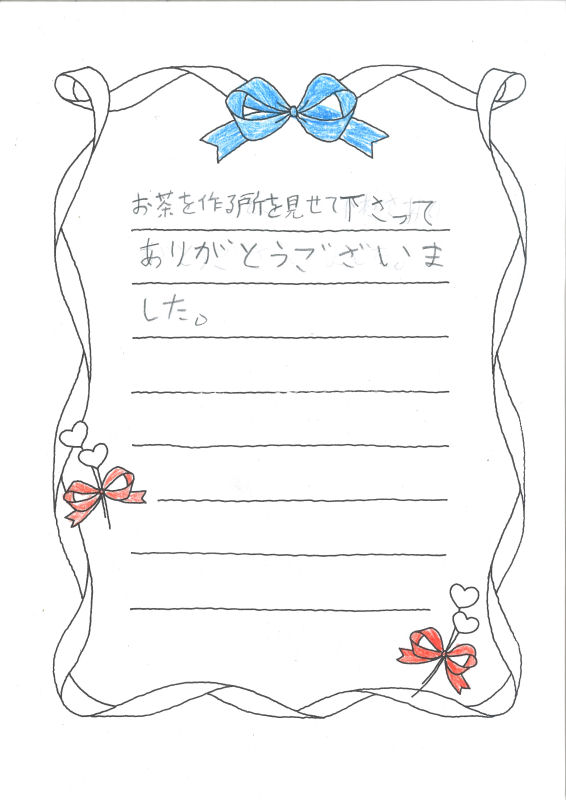 お茶を作る所を見せて下さって
ありがとうございま
した。